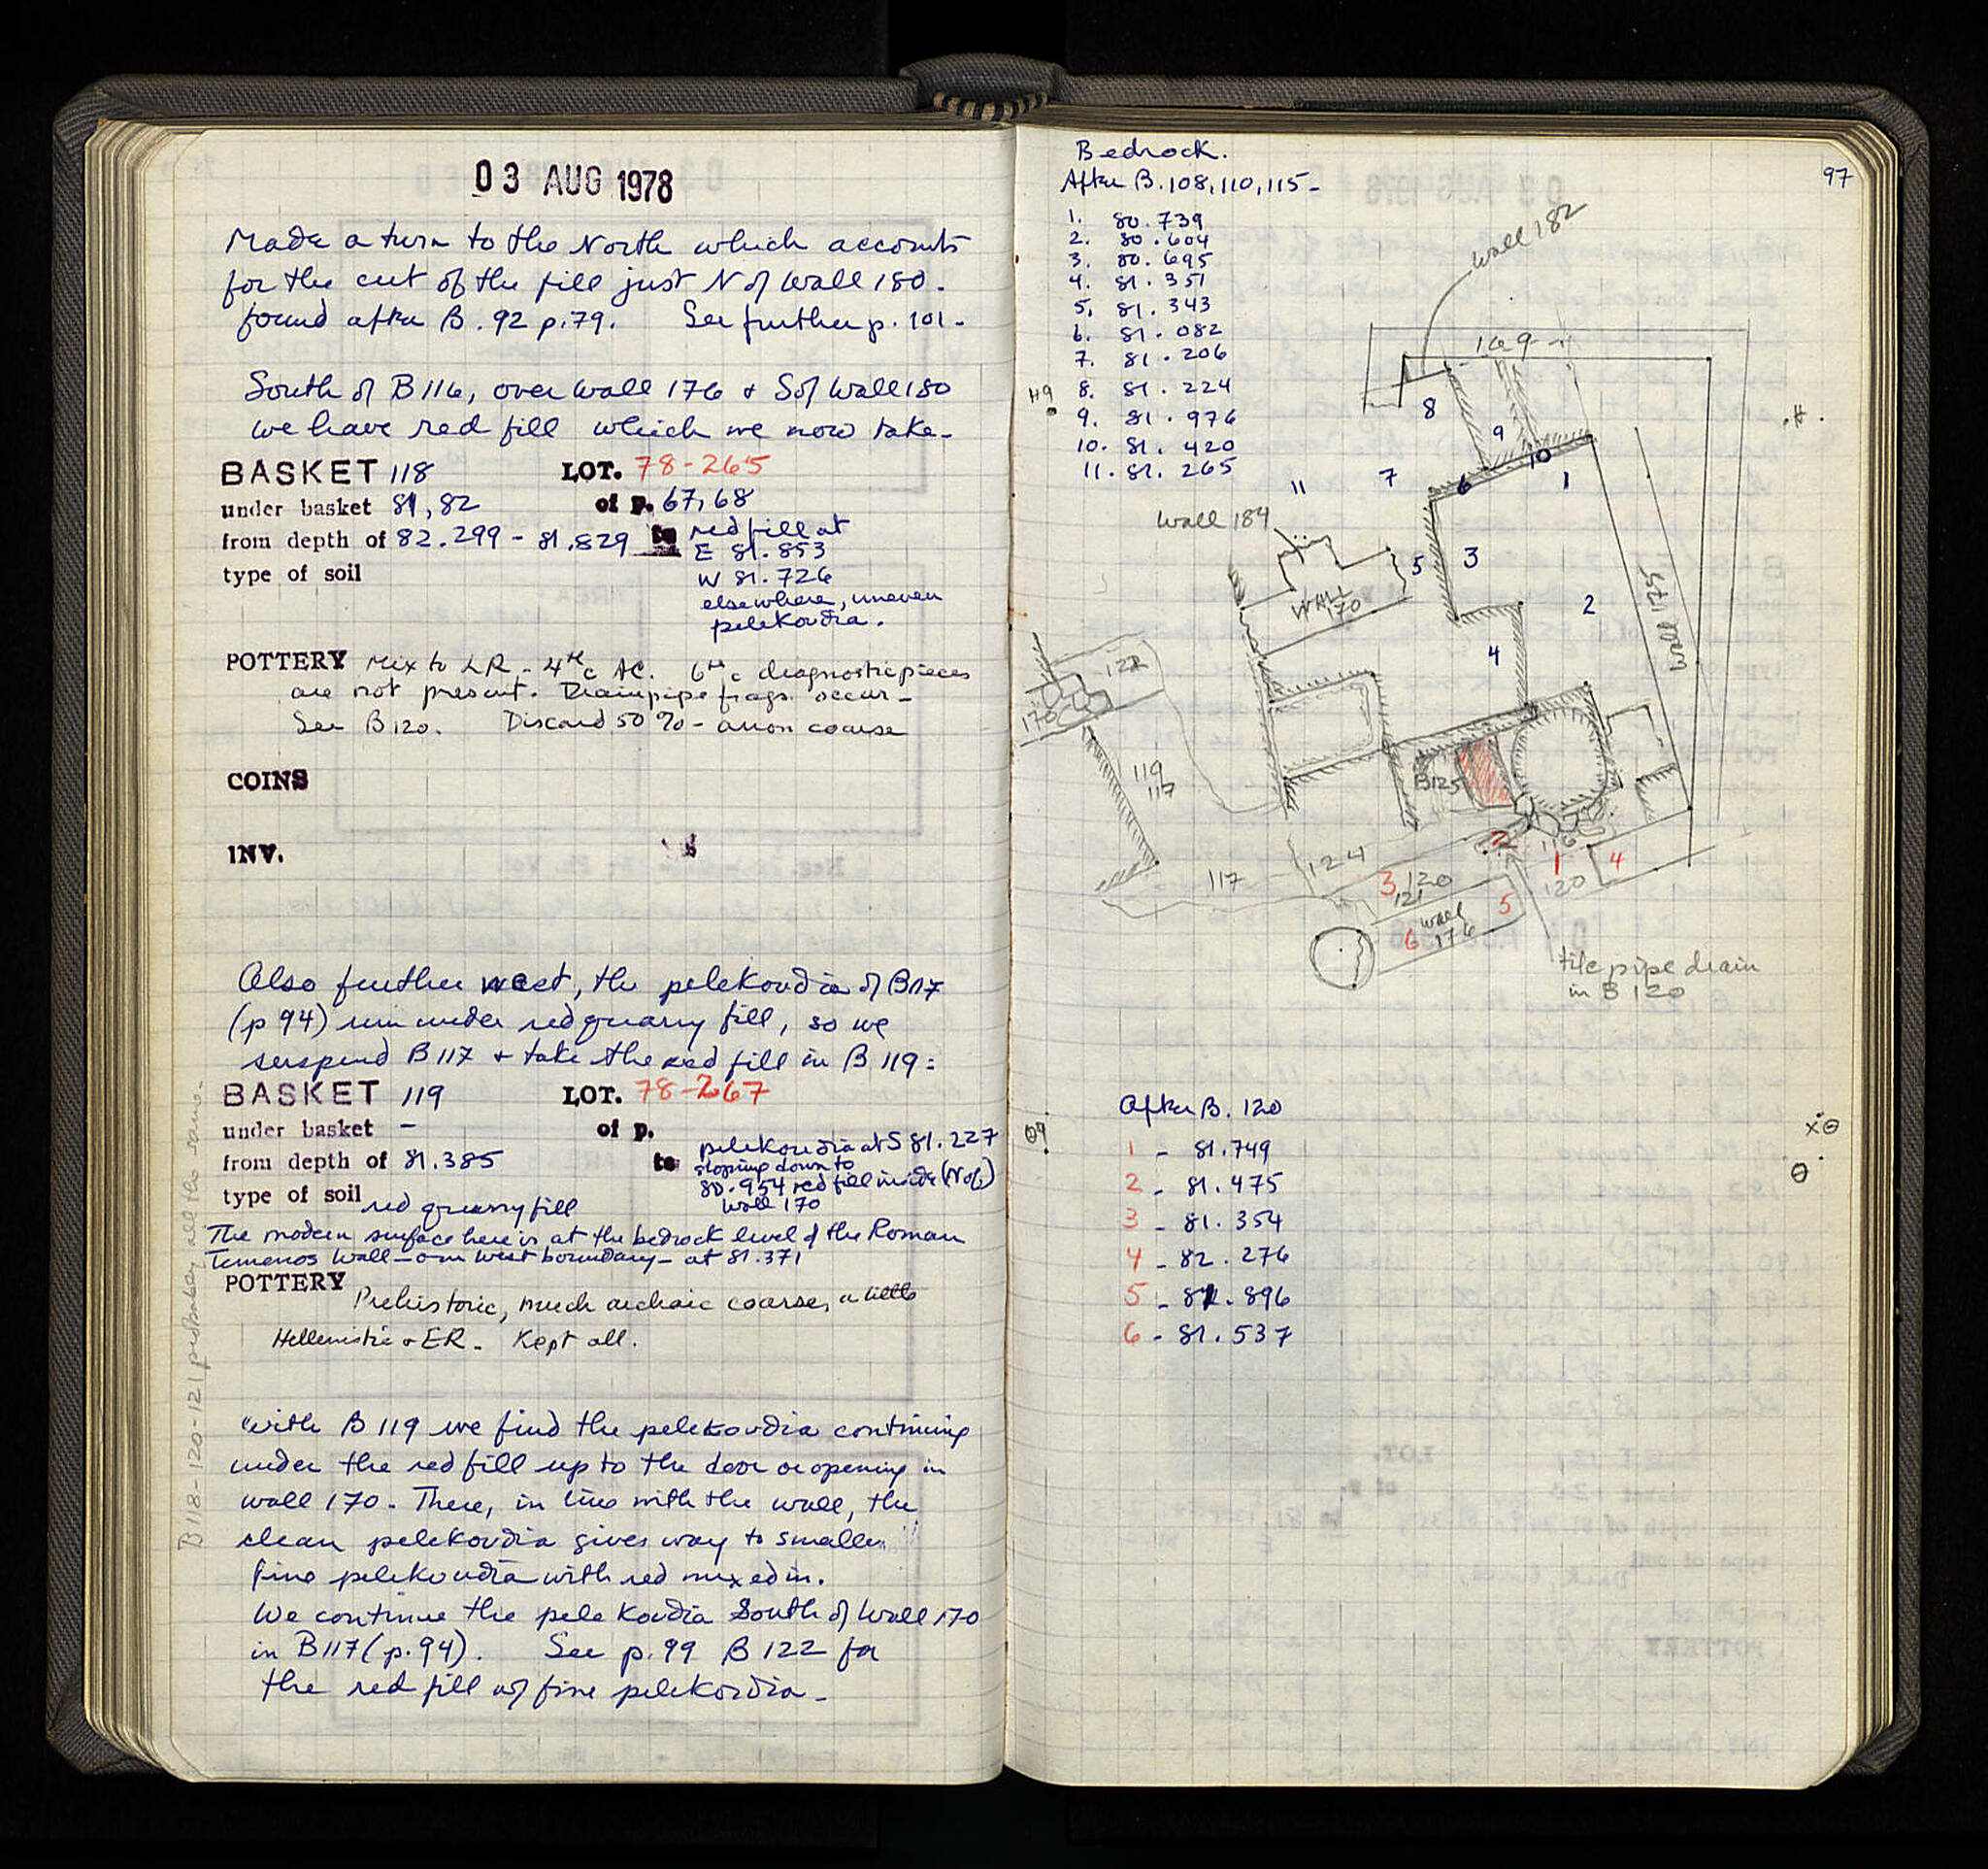 03 AUG 1978
Made a turn to the North which accounts
for the cut of the fill just N of Wall 180.
found after B. 92 p. 79. See further p. 101.
South of B116, over wall 176 + S of Wall 180
we have red fill which we now take.
BASKET 118 LOT. 78-265
under basket 81, 82 of p. 67, 68
from depth of 82.299 - 81.829 to red fill at
E 81.853
type of soil W 81.726
elsewhere, uneven
pelekoudia.
POTTERY Mix to LR - 4th c AC. 6th c diagnostic pieces
are not present. Drainpipe frags. occur -
See B120. Discard 50% - anon coarse
COINS
INV.
Also further west, the pelekoudia of B117
(p 94) run under red quarry fill, so we
suspend B117 + take the red fill in B 119:
BASKET 119 LOT. 78-267
under basket - of p.
from depth of 81.385 to pelekoudia at S 81.227
sloping down to
80.954 red fill inside (N of)
Wall 170
type of soil red quarry fill
The modern surface here is at the bedrock level of the Roman
Temenos Wall - our west boundary - at 81.371
POTTERY Prehistoric, much archaic coarse, a little
Hellenistic + ER. Kept all.
With B 119 we find the pelekoudia continuing
under the red fill up to the door or opening in
wall 170. There, in line with the wall, the
clean pelekoudia gives way to smaller
fine pelekoudia with red mixed in.
We continue the pelekoudia South of Wall 170
in B117 (p. 94). See p. 99 B 122 for
the red fill w/ fine pelekoudia.
B118-120-121 probably all the same.
97
Bedrock.
After B. 108, 110, 115-
1. 80.739
2. 80.604
3. 80.695
4. 81.351
5. 81.343
6. 81.082
7. 81.206
8. 81.224
9. 81.976
10. 81.420
11. 81.265
H9
H
wall 182
169
8
9
10
7
6
1
11
wall 184
5
3
WALL
170
2
Wall 175
4
122
170
119
117
B125
2
116
1
4
124
117
3
120
121
120
5
wall
176
6
tile pipe drain
in B 120
After B. 120
Θ9
XΘ
Θ
1 - 81.749
2 - 81.475
3 - 81.354
4 - 82.276
5 - 81.896
6 - 81.537